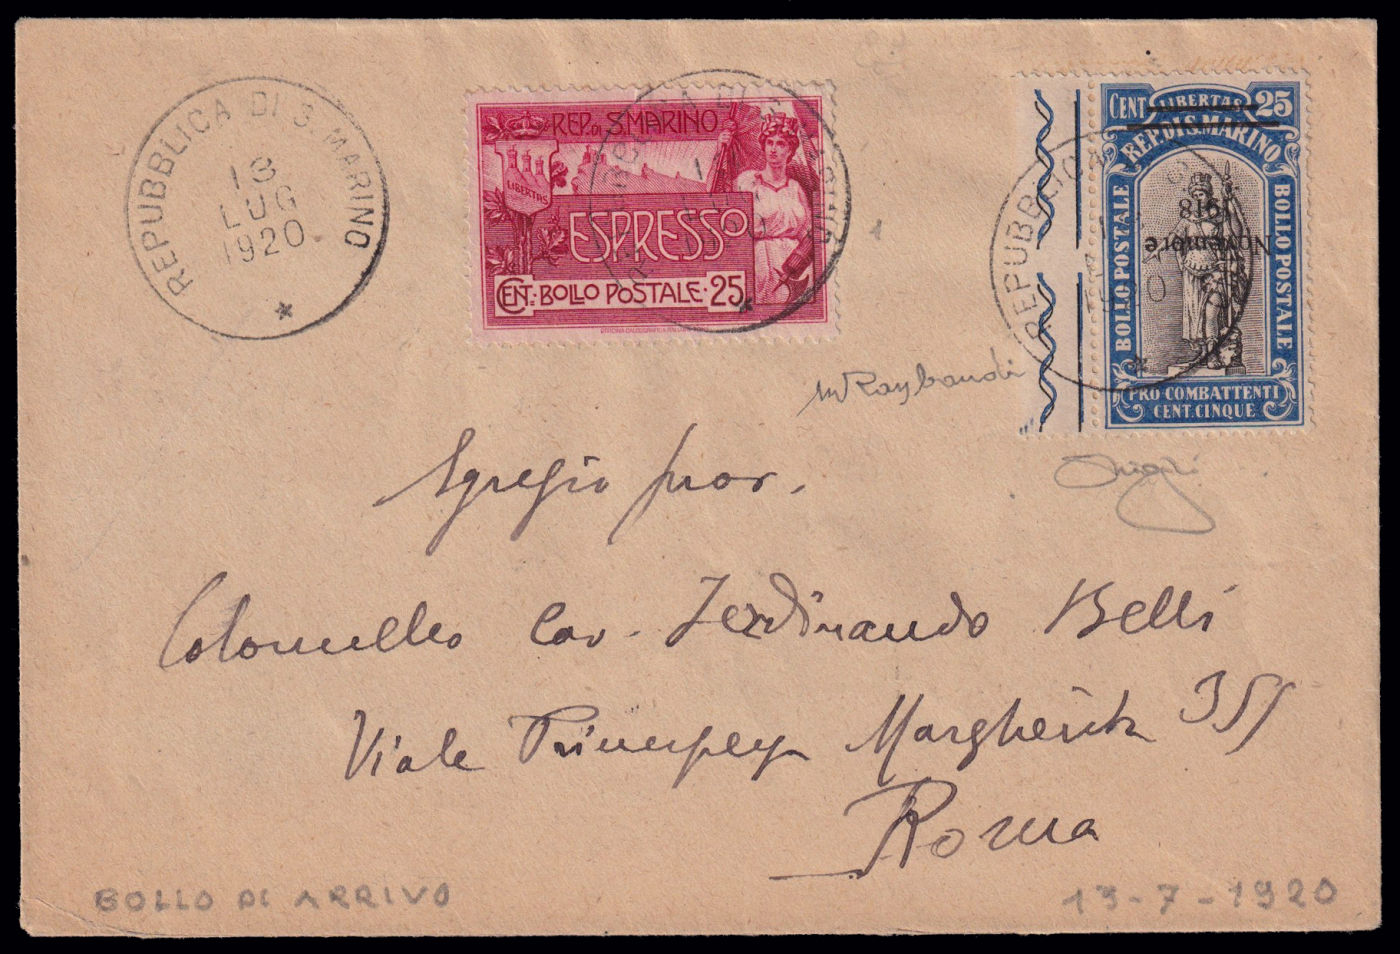 REPUBBLICA DI S. MARINO
13
LUG
1920
REP. DI S. MARINO
LIBERTAS
ESPRESSO
CENT. BOLLO POSTALE · 25
REPUBBLICA DI S. MARINO
CENT LIBERTAS 25
REP. DI S. MARINO
BOLLO POSTALE
BOLLO POSTALE
3 Novembre
1918
PRO COMBATTENTI
CENT. CINQUE
REPUBBLICA
1920
mRaybaudi
Egregio
Colonnello Cav. Ferdinando Belli
Viale Principessa Margherita
Roma
BOLLO DI ARRIVO
13-7-1920